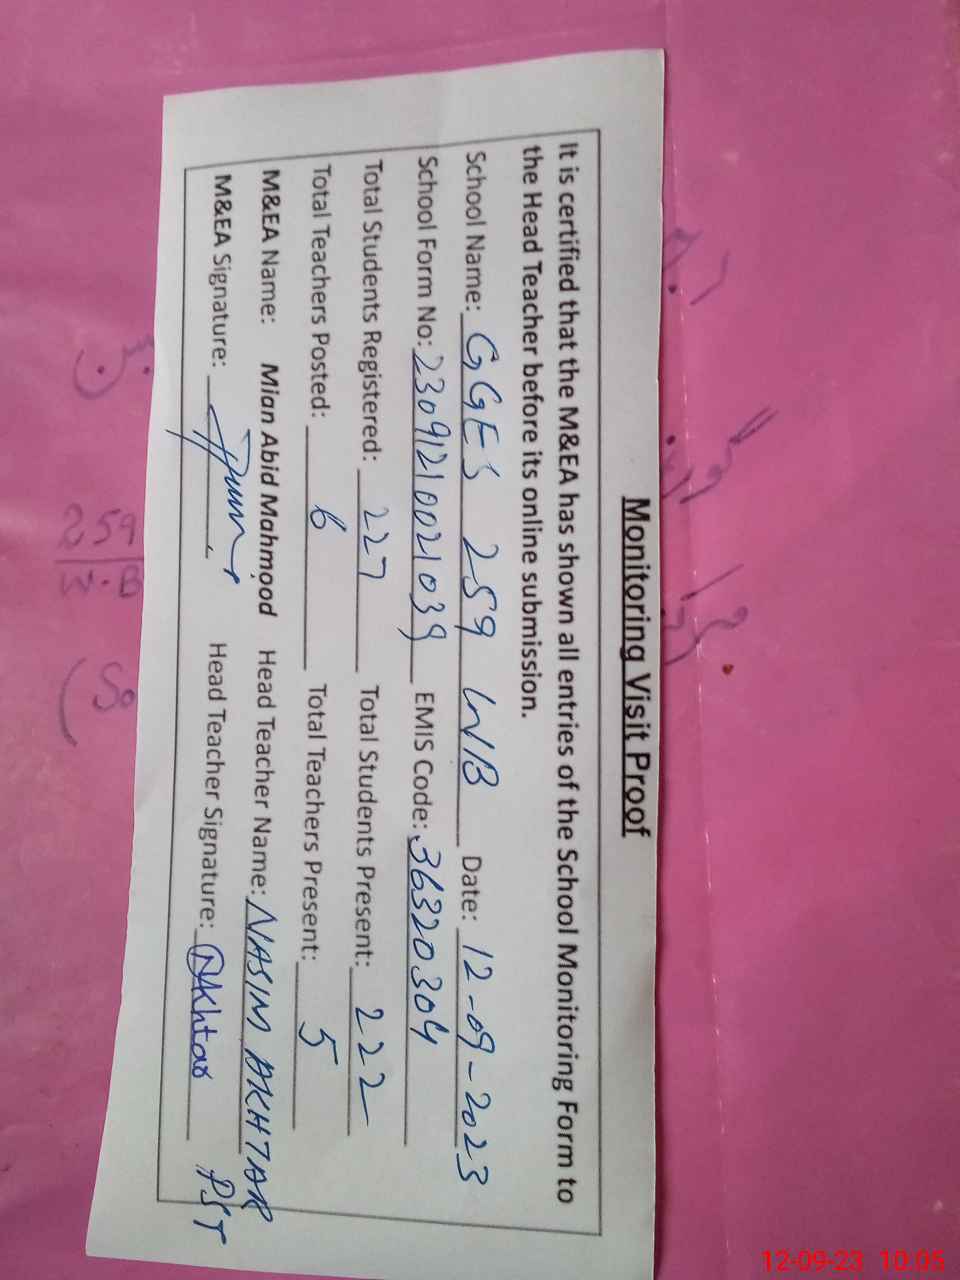 Monitoring Visit Proof
It is certified that the M&EA has shown all entries of the School Monitoring Form to
the Head Teacher before its online submission.
School Name: GGES 259 W/B Date: 12-09-2023
School Form No: 23091210021039 EMIS Code: 36320304
Total Students Registered: 227 Total Students Present: 222
Total Teachers Posted: 6 Total Teachers Present: 5
M&EA Name: Mian Abid Mahmood Head Teacher Name: NASIM AKHTAR
M&EA Signature: Head Teacher Signature: NAkhtar PST
259
W.B
12-09-23 10:05